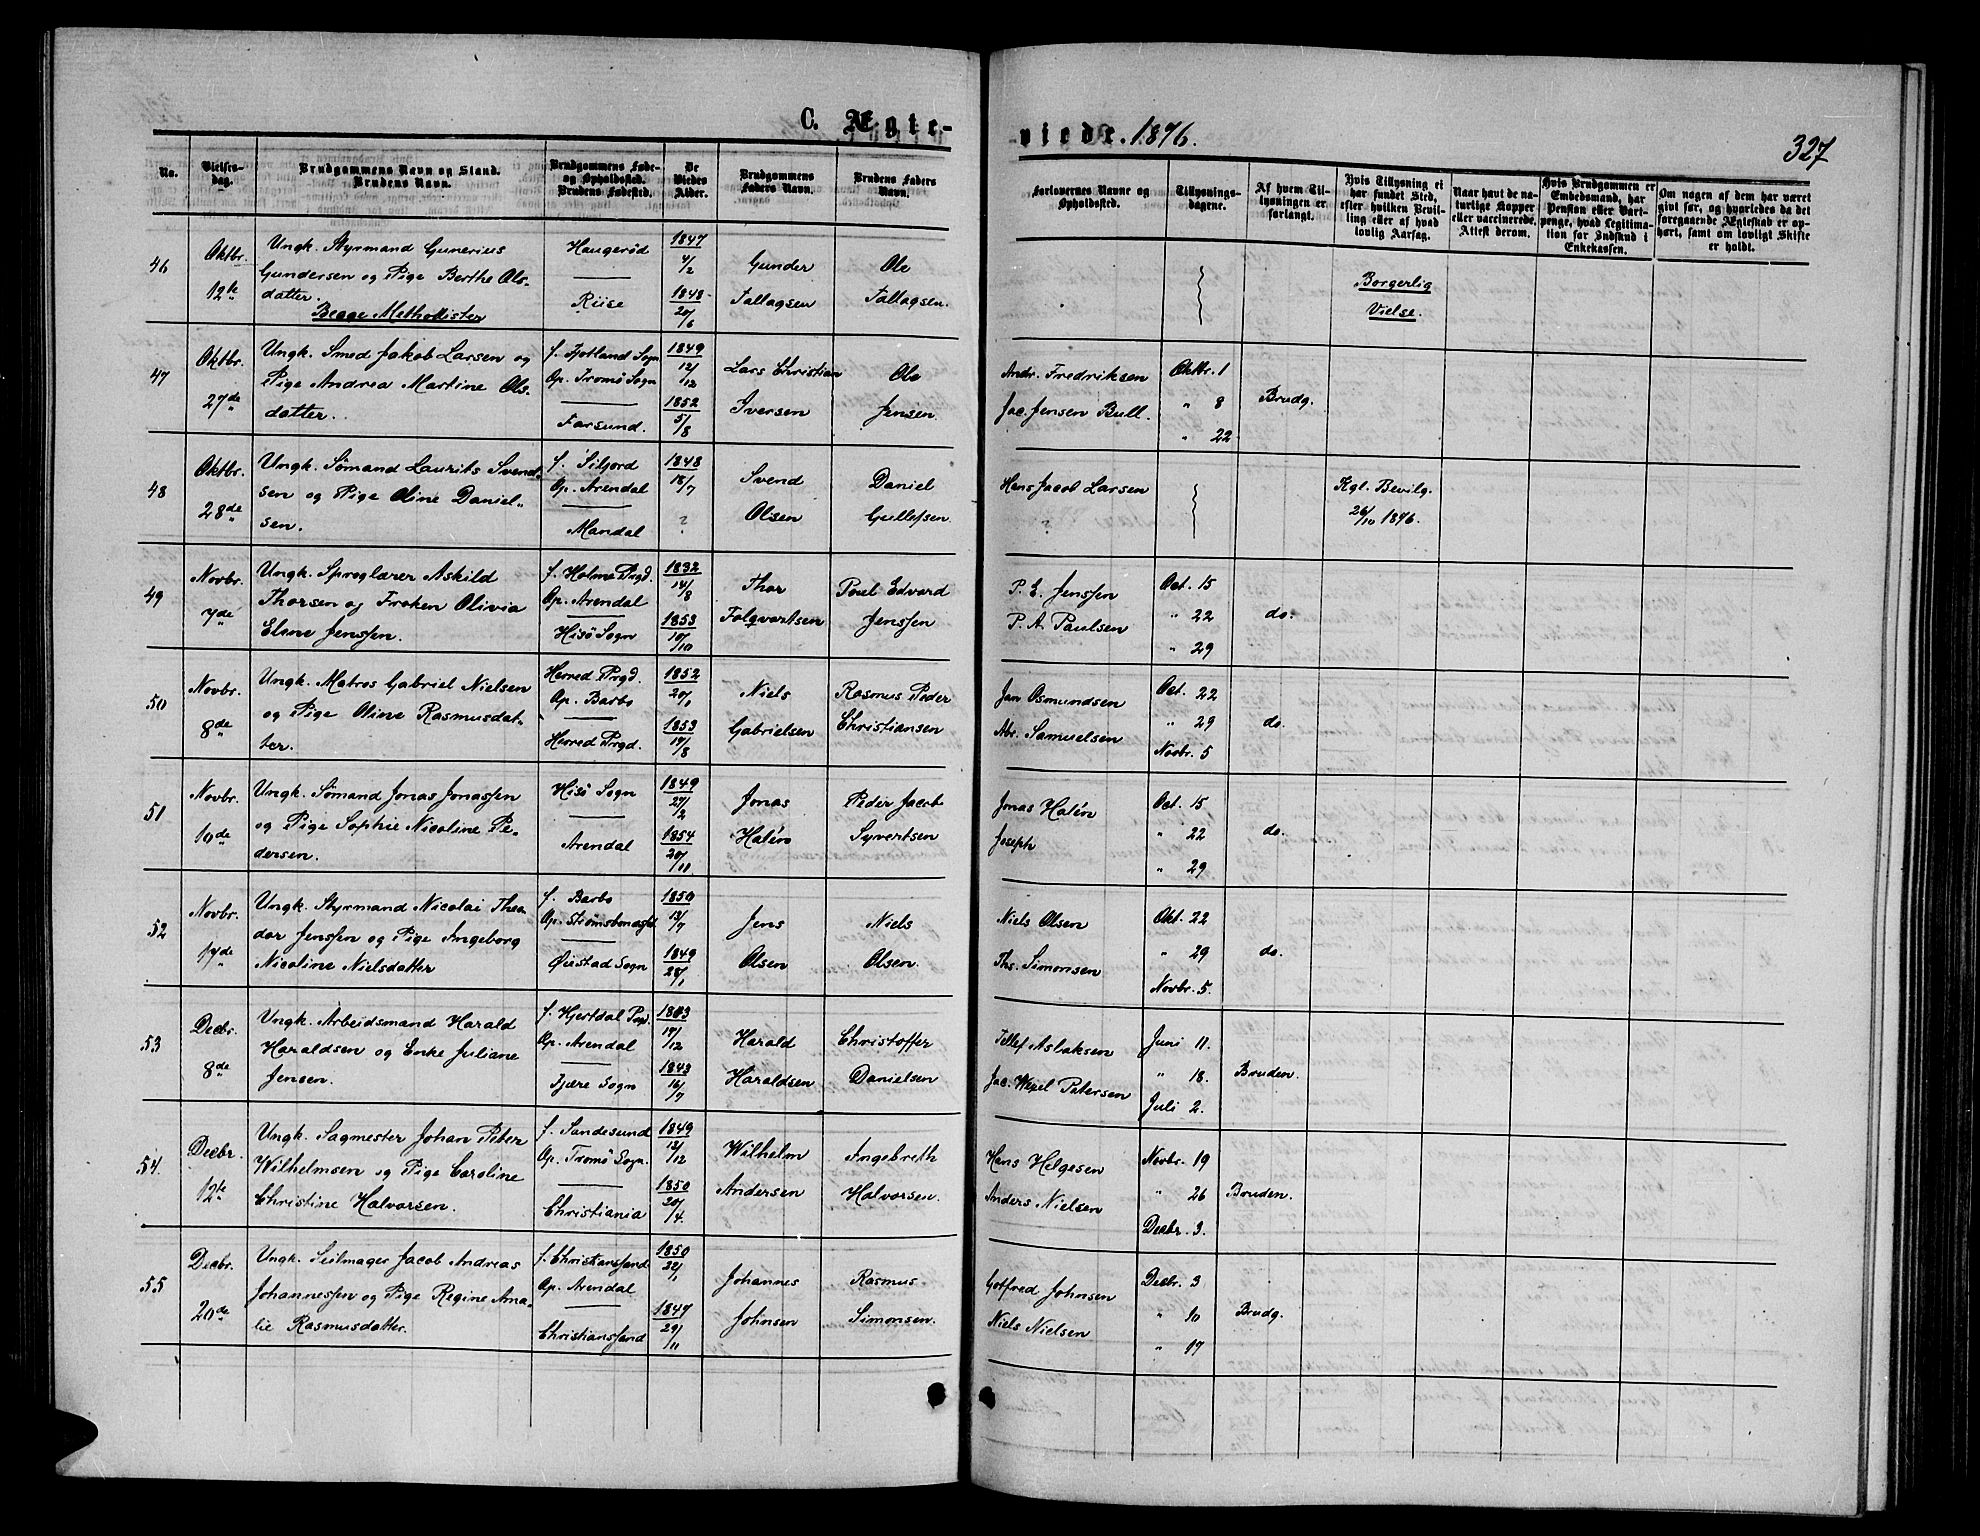 C. Ægte-
viede. 1876.
327
No.
Vielses-
dag.
Brudgommens Navn og Stand.
Brudens Navn.
Brudgommens Føde-
og Opholdssted.
Brudens Fødested.
De
Viedes
Alder.
Brudgommens
Faders Navn.
Brudens Faders
Navn.
Forlovernes Navne og
Opholdssted.
Tillysnings-
dagene.
Af hvem Til-
lysningen er
forlangt.
Hvis Tillysning ei
har fundet Sted,
efter hvilken Bevil-
ling eller af hvad
lovlig Aarsag.
Naar havt de na-
turlige Kopper
eller vaccinerede.
Attest derom.
Hvis Brudgommen er
Embedsmand, har
Pension eller Vart-
penge, hvad Legitima-
tion for Indskud i
Enkekassen.
Om nogen af dem har været
givt før, og hvorledes da det
foregaaende Ægteskab er op-
hørt, samt om lovligt Skifte
er holdt.
46
Oktbr.
12te
Ungk. Styrmand Gunerius
Gundersen og Pige Berthe Ols-
datter.
Begge Methodister
Haugerød
Riise
1847
4/2
1848
20/6
Gunder
Tallagsen
Ole
Tallagsen.
Borgerlig
Vielse.
47
Oktbr.
27de
Ungk. Smed Jakob Larsen og
Pige Andrea Martine Ols-
datter.
f. Fjotland Sogn
Op. Tromø Sogn
Farsund.
1849
12/12
1852
5/8
Lars Christian
Iversen
Ole
Jensen.
Andr. Fredriksen
Jac. Jensen Bull.
Oktbr. 1
" 8
" 22
Brudg.
48
Oktbr.
28de
Ungk. Sømand Laurits Svend-
sen og Pige Oline Daniel-
sen.
f. Siljord
Op. Arendal
Mandal
1848
18/7
?
Svend
Olsen
Daniel
Gullefsen.
Hans Jacob Larsen
?
Kgl. Bevilg.
26/10 1876.
49
Novbr.
7de
Ungk. Sproglærer Askild
Thorsen og Frøken Olivia
Elene Jenssen.
f. Holme Prgd.
Op. Arendal
Hisø Sogn
1832
14/8
1853
10/10
Thor
Folqvartsen
Poul Edvard
Jenssen
P. E. Jenssen
P. A. Paulsen
Oct. 15
" 22
" 29
do.
50
Novbr.
8de
Ungk. Matros Gabriel Nielsen
og Pige Oline Rasmusdat-
ter.
Herred Prgd.
Op. Barbo
Herred Prgd.
1852
20/1
1853
17/8
Niels
Gabrielsen
Rasmus Peder
Christiansen
Jan Osmundsen
Abr. Samuelsen
Oct. 22
" 29
Novbr. 5
do.
51
Novbr.
10de
Ungk. Sømand Jonas Jonassen
og Pige Sophie Nicoline Pe-
dersen.
Hisø Sogn
Arendal
1849
27/2
1854
20/11
Jonas
Halén
Peder Jacob
Syvertsen
Jonas Halén
Joseph
Oct. 15
" 22
" 29
do.
52
Novbr.
17de
Ungk. Styrmand Nicolai Theo-
dor Jenssen og Pige Ingeborg
Nicoline Nielsdatter
f. Barbo
Op.
Øiestad Sogn
1850
13/7
1849
28/1
Jens
Olsen
Niels
Olsen.
Niels Olsen
Ths. Simonsen
Okt. 22
" 29
Novbr. 5.
do.
53
Decbr.
8de
Ungk. Arbeidsmand Harald
Haraldsen og Enke Juliane
Jensen.
f. Hjertdal
Op. Arendal
Fjære Sogn
17/12
1843
16/7
Harald
Haraldsen
Christoffer
Danielsen
Tellef Aslaksen
Jac. Wexel Petersen
Juni 11.
" 18.
Juli 2.
Bruden.
54.
Decbr.
12te
Ungk. Sagmester Johan Peter
Wilhelmsen og Pige Caroline
Christine Halvorsen.
f. Sandesund
Op. Tromø Sogn.
Christiania
1849
13/12
1850
20/4.
Wilhelm
Andersen
Ingebreth
Halvorsen.
Hans Helgesen
Anders Nielsen
Novbr. 19
" 26
Decbr. 3.
Bruden.
55
Decbr.
20de
Ungk. Seilmager Jacob Andreas
Johannessen og Pige Regine Ama-
lie Rasmusdatter.
f. Christianssand
Op. Arendal
Christianssand
1850
22/1
1847
29/11
Johannes
Johnsen
Rasmus
Simonsen.
Gotfred Johnsen
Niels Nielsen
Decbr. 3
" 10
" 17
Brudg.